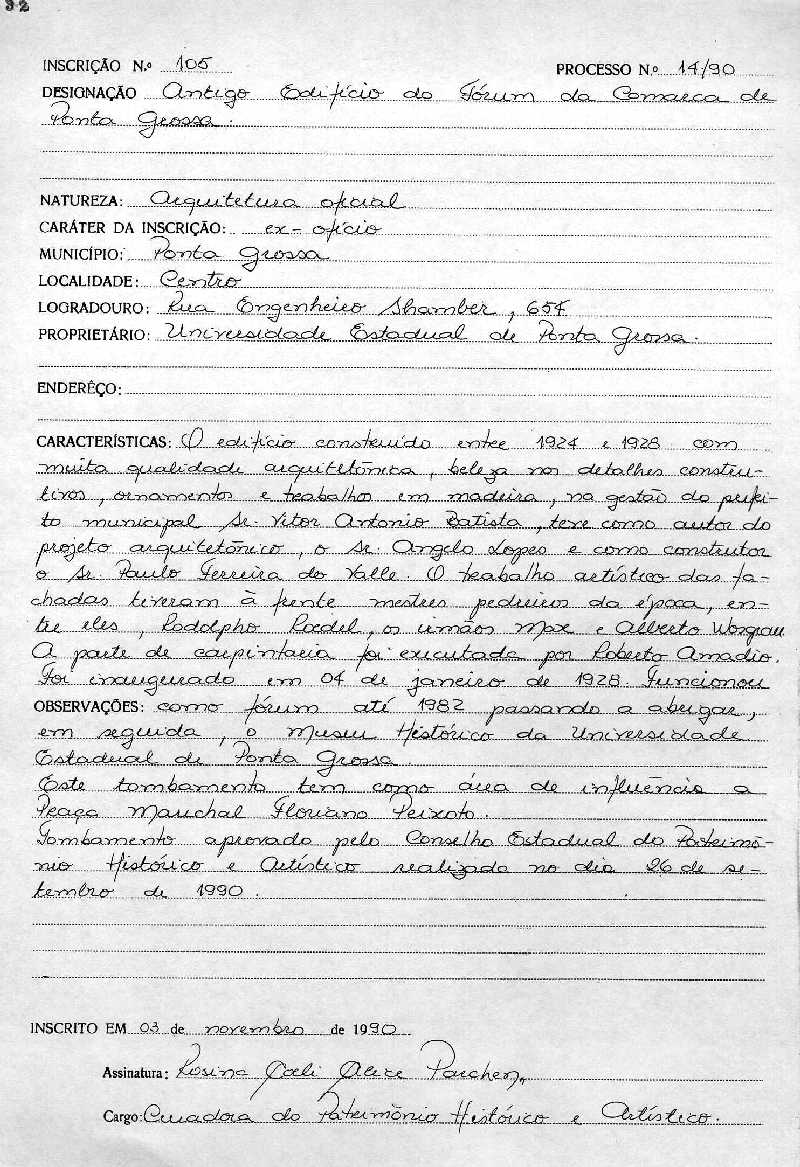 32
INSCRIÇÃO N.º 105 PROCESSO N.º 14/90
DESIGNAÇÃO Antigo Edifício do Fórum da Comarca de
Ponta Grossa.
NATUREZA: Arquitetura oficial
CARÁTER DA INSCRIÇÃO: ex-ofício
MUNICÍPIO: Ponta Grossa
LOCALIDADE: Centro
LOGRADOURO: Rua Engenheiro Shamber, 654
PROPRIETÁRIO: Universidade Estadual de Ponta Grossa.
ENDERÊÇO:
CARACTERÍSTICAS: O edifício construído entre 1924 e 1928 com
muita qualidade arquitetônica, beleza nos detalhes constru-
tivos, ornamentos e trabalhos em madeira, na gestão do prefei-
to municipal Sr. Vitor Antonio Batista, teve como autor do
projeto arquitetônico, o Sr. Angelo Lopes e como construtor
o Sr. Paulo Ferreira do Valle. O trabalho artístico das fa-
chadas tiveram à frente mestres pedreiros da época, en-
tre eles, Rodolpho Roedel, os irmãos Max e Alberto Wosgrau
A parte de carpintaria foi executada por Roberto Amadio.
Foi inaugurado em 04 de janeiro de 1928. Funcionou
OBSERVAÇÕES: como fórum até 1982 passando a abrigar,
em seguida, o Museu Histórico da Universidade
Estadual de Ponta Grossa.
Este tombamento tem como área de influência a
Praça Marechal Floriano Peixoto.
Tombamento aprovado pelo Conselho Estadual do Patrimô-
nio Histórico e Artístico realizado no dia 26 de se-
tembro de 1990.
INSCRITO EM 03 de novembro de 1990
Assinatura: Rosina Coeli Alice Parchen
Cargo: Curadora do Patrimônio Histórico e Artístico.